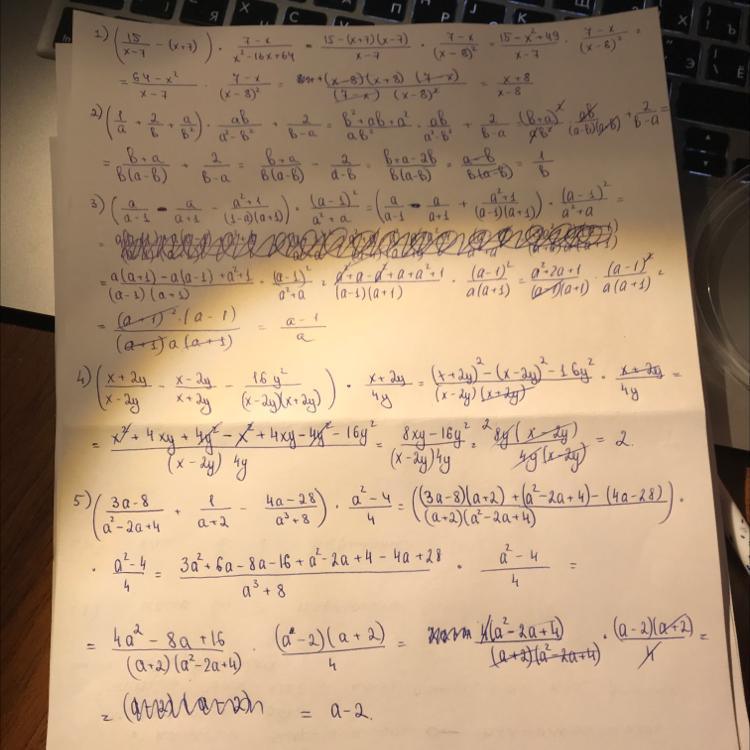 1) (15/(x-7) - (x+7)) · (7-x)/(x²-16x+64) = (15-(x+7)(x-7))/(x-7) · (7-x)/(x-8)² = (15-x²+49)/(x-7) · (7-x)/(x-8)² =
= (64-x²)/(x-7) · (7-x)/(x-8)² = ((x-8)(x+8)(7-x))/((7-x)(x-8)²) = (x+8)/(x-8)
2) (1/a + 2/b + a/b²) · ab/(a²-b²) + 2/(b-a) = (b²+ab+a²)/(ab²) · ab/(a²-b²) + 2/(b-a) = (b+a)²/(ab²) · ab/((a-b)(a+b)) + 2/(b-a)
= (b+a)/(b(a-b)) + 2/(b-a) = (b+a)/(b(a-b)) - 2/(a-b) = (b+a-2b)/(b(a-b)) = (a-b)/(b(a-b)) = 1/b
3) (a/(a-1) - a/(a+1) - (a²+1)/((1-a)(a+1))) · (a-1)²/(a²+a) = (a/(a-1) - a/(a+1) + (a²+1)/((a-1)(a+1))) · (a-1)²/(a²+a) =
=
= (a(a+1)-a(a-1)+a²+1)/((a-1)(a+1)) · (a-1)²/(a²+a) = (a²+a-a²+a+a²+1)/((a-1)(a+1)) · (a-1)²/(a(a+1)) = (a²+2a+1)/((a-1)(a+1)) · (a-1)²/(a(a+1)) =
= ((a+1)²·(a-1))/((a+1)a(a+1)) = (a-1)/a
4) ((x+2y)/(x-2y) - (x-2y)/(x+2y) - 16y²/((x-2y)(x+2y))) · (x+2y)/4y = ((x+2y)²-(x-2y)²-16y²)/((x-2y)(x+2y)) · (x+2y)/4y =
= (x²+4xy+4y²-x²+4xy-4y²-16y²)/((x-2y)4y) = (8xy-16y²)/((x-2y)4y) = ²8y(x-2y)/(4y(x-2y)) = 2.
5) ((3a-8)/(a²-2a+4) + 1/(a+2) - (4a-28)/(a³+8)) · (a²-4)/4 = (((3a-8)(a+2)+(a²-2a+4)-(4a-28))/((a+2)(a²-2a+4))) ·
· (a²-4)/4 = (3a²+6a-8a-16+a²-2a+4-4a+28)/(a³+8) · (a²-4)/4 =
= (4a²-8a+16)/((a+2)(a²-2a+4)) · ((a-2)(a+2))/4 = 4(a²-2a+4)/((a+2)(a²-2a+4)) · ((a-2)(a+2))/4 =
= = a-2.